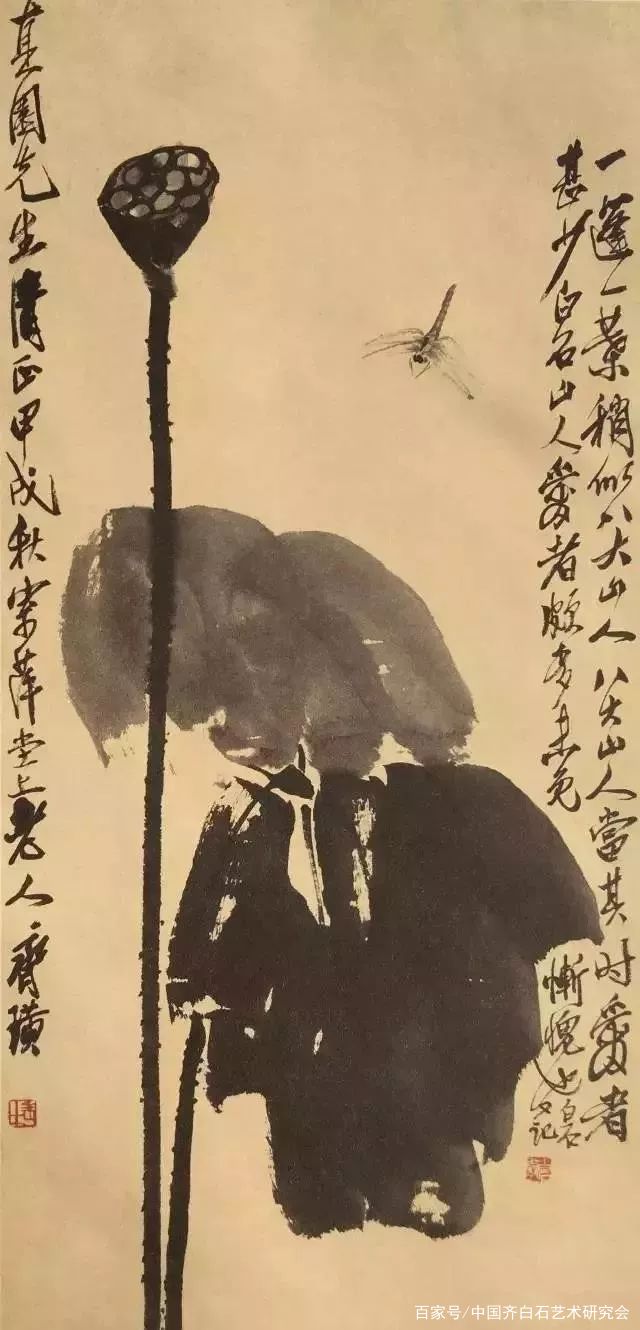 一蓬一葉稍似八大山人八大山人當其时愛者
甚少白石山人愛者頗多未免
慚愧也白石
又記
其園先生清正甲戌秋寄萍堂上老人齊璜
百家号/中国齐白石艺术研究会